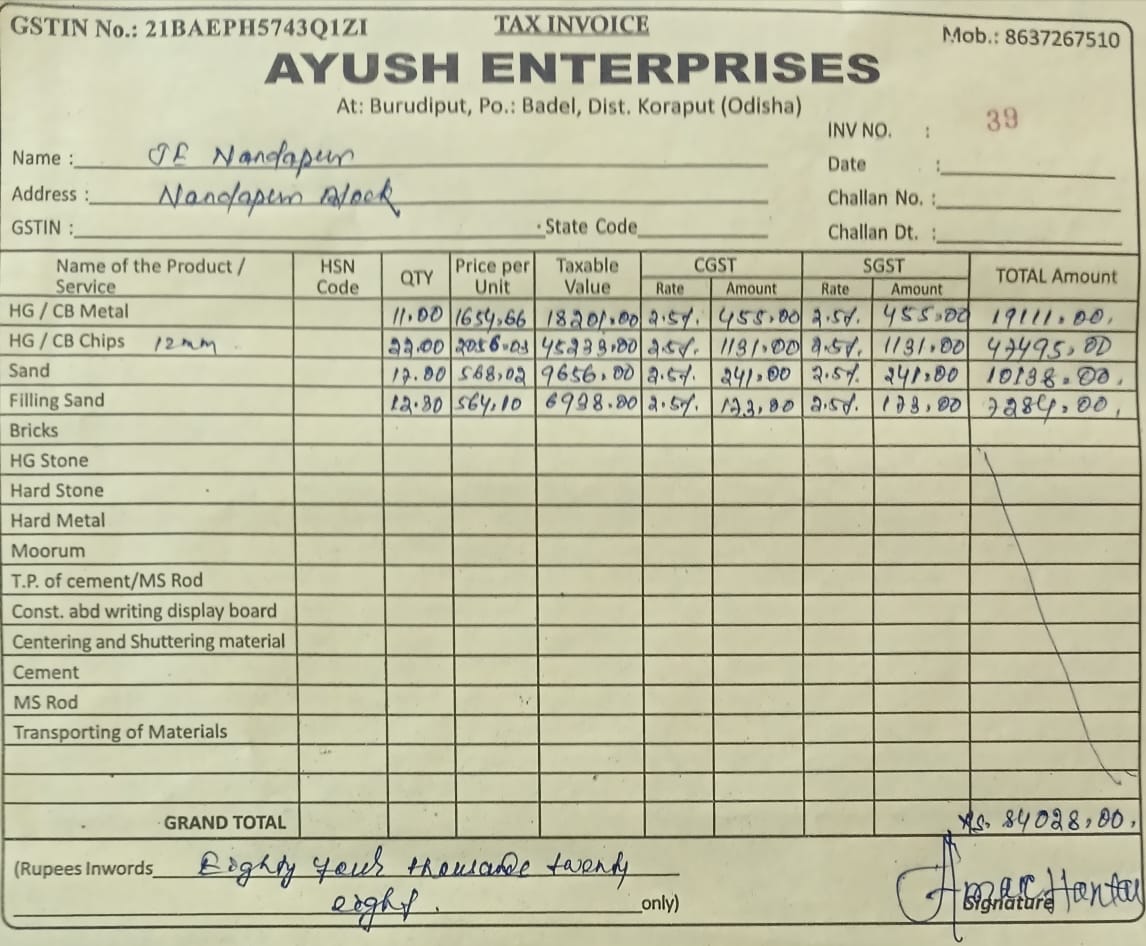 GSTIN No.: 21BAEPH5743Q1ZI TAX INVOICE Mob.: 8637267510
AYUSH ENTERPRISES
At: Burudiput, Po.: Badel, Dist. Koraput (Odisha)
INV NO. : 39
Name : JE Nandapur
Date :
Address : Nandapur Block
Challan No. :
GSTIN : State Code
Challan Dt. :
Name of the Product / Service HSN Code QTY Price per Unit Taxable Value CGST Rate Amount SGST Rate Amount TOTAL Amount
HG / CB Metal 11.00 1654.66 18201.00 2.5% 455.00 2.5% 455.00 19111.00
HG / CB Chips 12mm 22.00 2056.03 45233.00 2.5% 1131.00 2.5% 1131.00 47495.00
Sand 17.00 568.02 9656.00 2.5% 241.00 2.5% 241.00 10138.00
Filling Sand 12.30 564.10 6938.00 2.5% 173.00 2.5% 173.00 7284.00
Bricks
HG Stone
Hard Stone
Hard Metal
Moorum
T.P. of cement/MS Rod
Const. abd writing display board
Centering and Shuttering material
Cement
MS Rod
Transporting of Materials
GRAND TOTAL Rs. 84028.00
(Rupees Inwords Eighty four thousande twenty
eight. only)
Signature